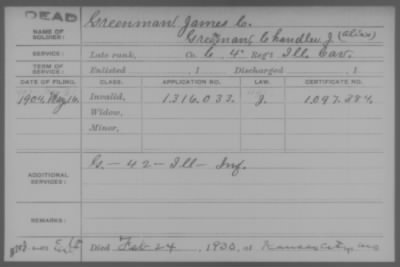 DEAD
NAME OF SOLDIER: Greenman, James C.
Greenman, Chandler J. (alias)
SERVICE: Late rank, Co. C, 4" Reg't Ill. Cav.
TERM OF SERVICE: Enlisted , 1 Discharged , 1
DATE OF FILING. CLASS. APPLICATION NO. LAW. CERTIFICATE NO.
1904, May 16. Invalid, 1.316.033. J. 1.097.884.
Widow,
Minor,
ADDITIONAL SERVICES: G. - 42 - Ill - Inf.
REMARKS:
Died Feb 24, 1930, at Kansas City, Mo